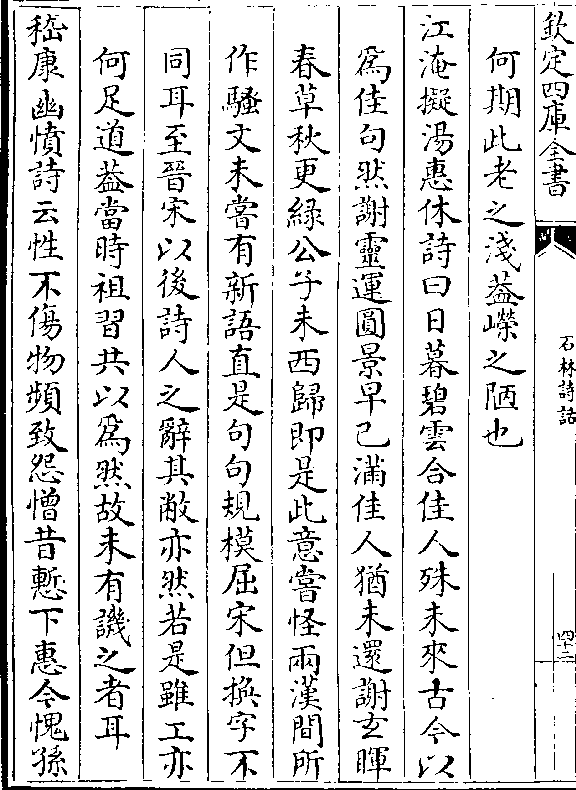 欽定四庫全書
石林詩話
四十二
何期此老之淺葢嶸之陋也
江淹擬湯惠休詩曰日暮碧雲合佳人殊未來古今以
爲佳句然謝靈運圓景早已滿佳人猶未還謝玄暉
春草秋更緑公子未西歸即是此意嘗怪兩漢間所
作騷文未嘗有新語直是句句規模屈宋但換字不
同耳至晉宋以後詩人之辭其敝亦然若是雖工亦
何足道葢當時祖習共以爲然故未有譏之者耳
嵇康幽憤詩云性不傷物頻致怨憎昔慙下惠今愧孫